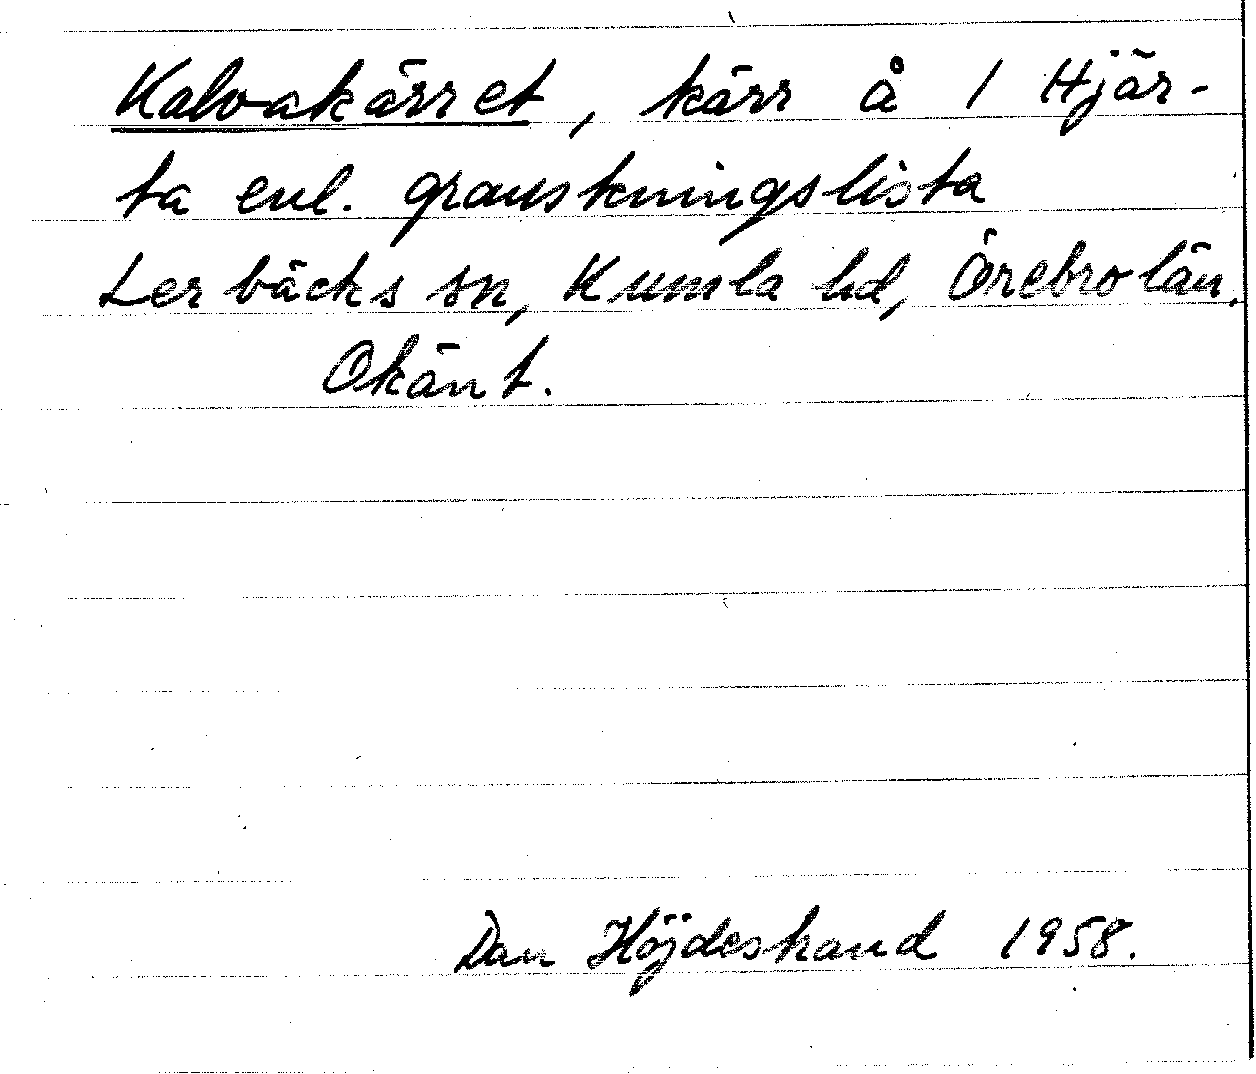 Kalvakärret, kärr å 1 Hjär-
ta enl. granskningslista
Lerbäcks sn, Kumla hd, Örebro län.
Okänt.
Dan Höjdestrand 1958.